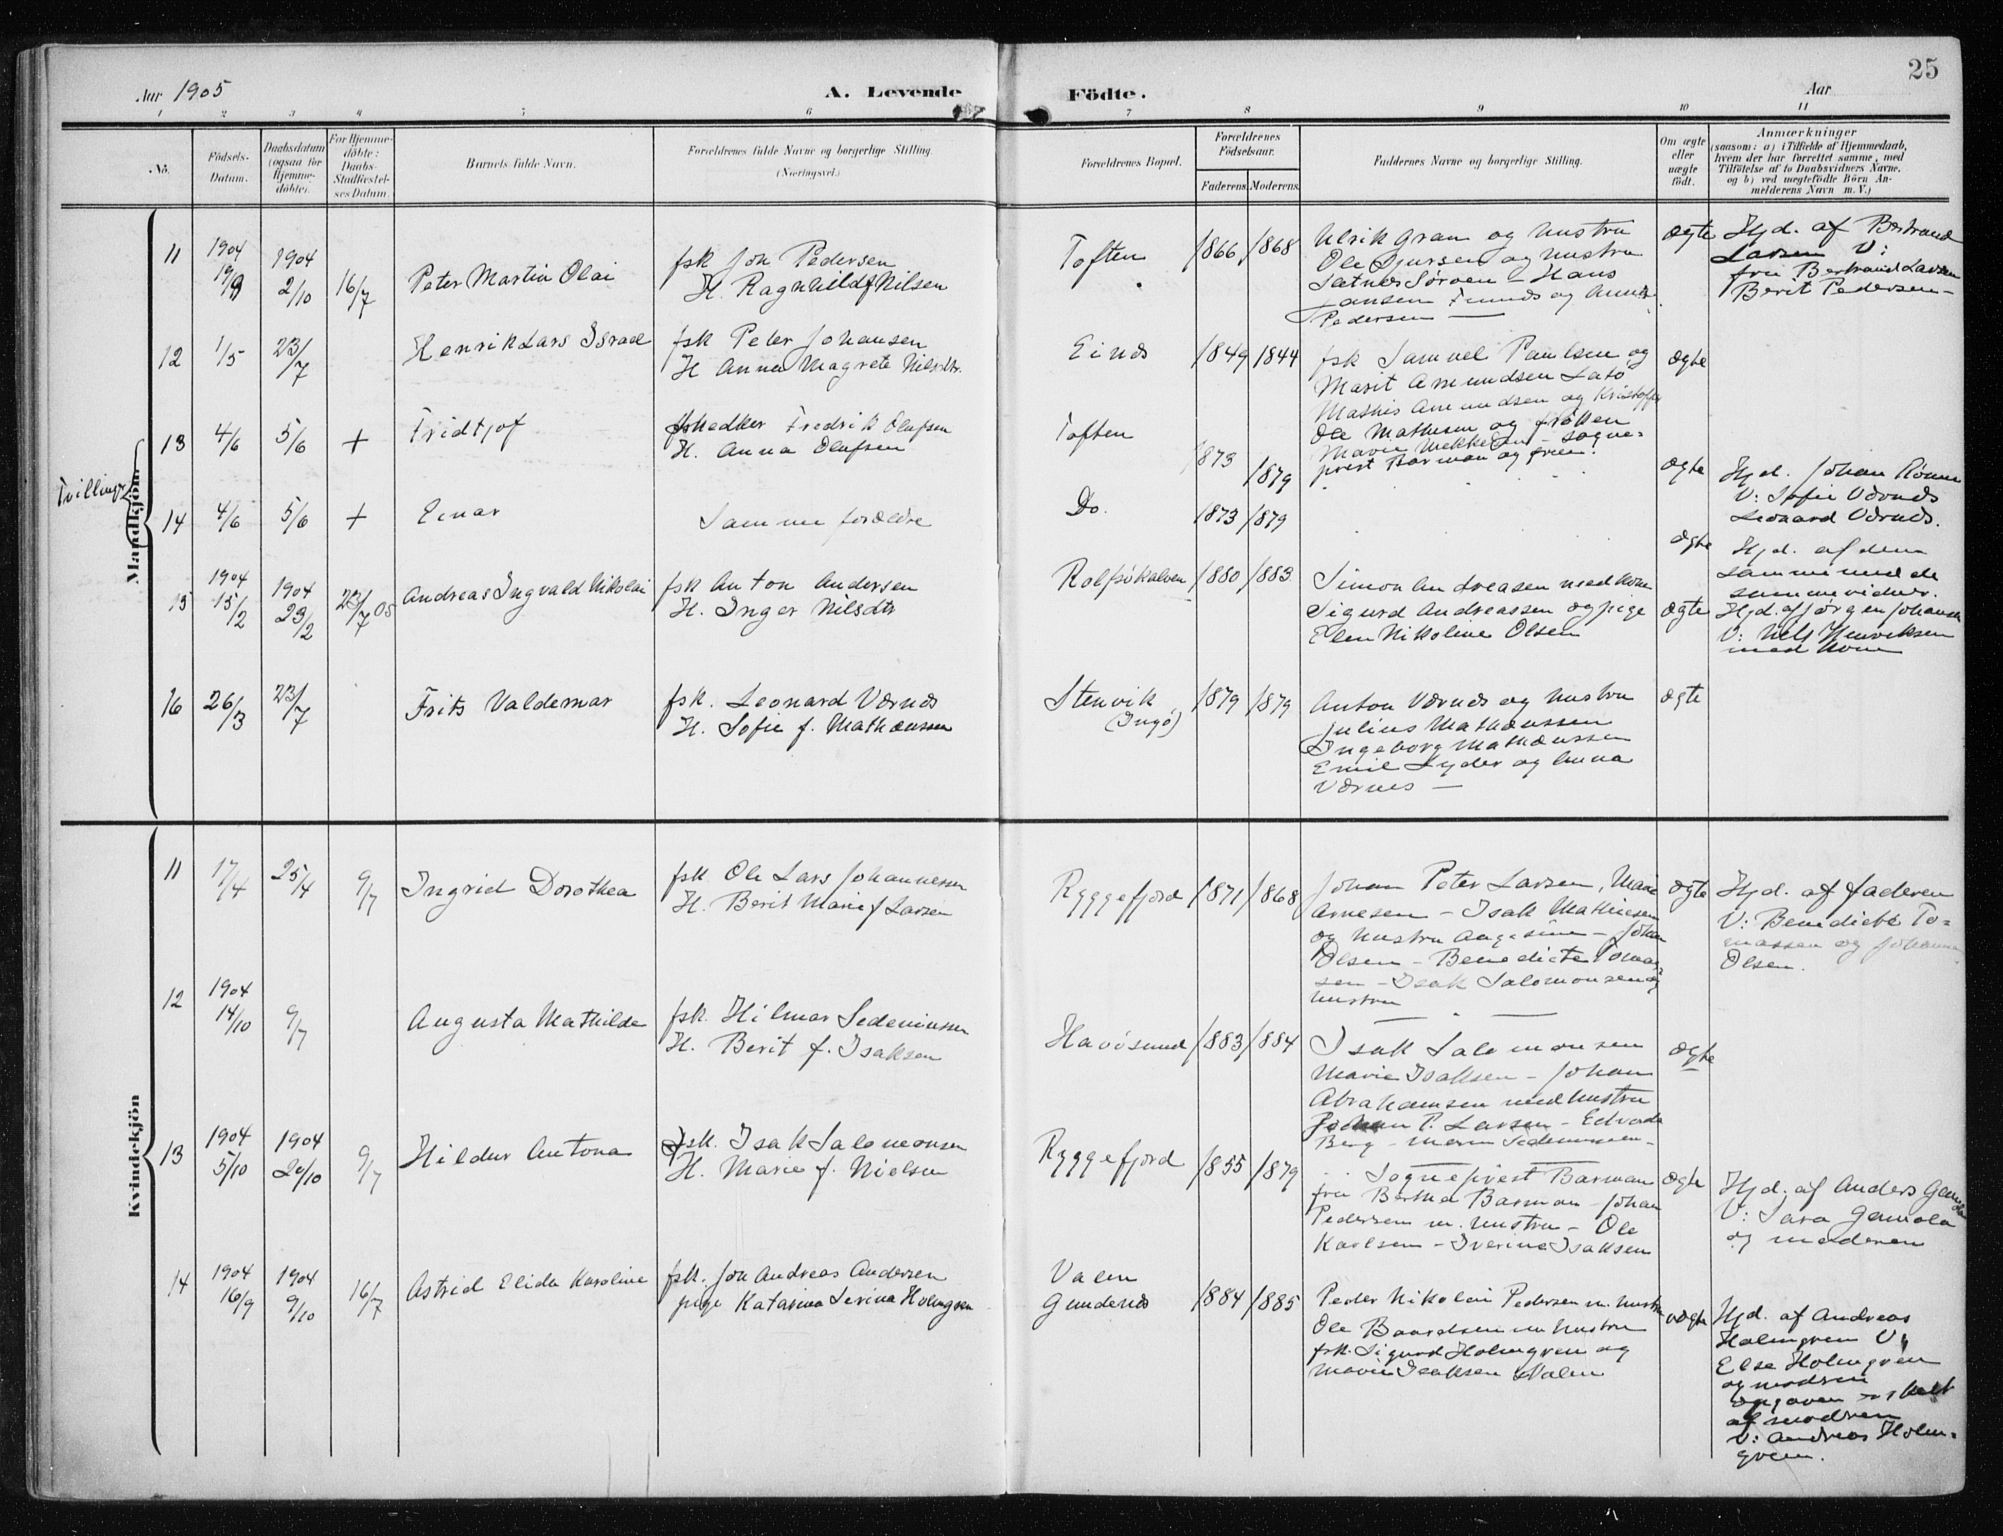 25
Aar 1905
A. Levende Födte.
Aar
1 2 3 4 5 6 7 8 9 10 11
No.
Födsels-Datum.
Daabsdatum (ogsaa for Hjemme-döbte).
For Hjemme-döbte: Daabs-Stadfæstel-ses Datum.
Barnets fulde Navn.
Forældrenes fulde Navne og borgerlige Stilling.
(Næringsvei.)
Forældrenes Bopæl.
Forældrenes Födselsaar.
Faderens. Moderens.
Faddernes Navne og borgerlige Stilling.
Om ægte eller uægte födt.
Anmærkninger
(saasom: a) i Tilfælde af Hjemmedaab,
hvem der har forrettet samme, med
Tilföielse af to Daabsvidners Navne,
og b) ved uægtefödte Börn An-
melderens Navn m. V.)
Mandkjön
Tvillinger
11
1904 19/9
1904 2/10
16/7
Peter Martin Olai
fsk Jon Pedersen
H. Ragnhild f Nilsen
Toften
1866 1868
Ulrik Gran og hustru
Ole Sjursen og hustru
Hans
Jansen og
Pedersen
ægte
Hjd. af Bertrand
Larsen V:
fru Bertrand Larsen
Berit Pedersen
12
1/5
23/7
Henrik Lars Israel
fsk Peter Johansen
H Anna Magrete Nilsdtr.
1849 1844
fsk Samuel Paulsen og
Marit Amundsen
Mathis Amundsen og
ægte
13
4/6
5/6
+
Fridtjof
Fredrik Olufsen
H. Anna Olufsen
Toften
1873
1879
Ole Mathesen og frøken
Marie - Sogne-
prest Barman og frue.
ægte
Hjd. Johan
V: Sofie Værnes
Leonard Værnes.
14
4/6
5/6
+
Einar
Samme forældre
Do.
1873 1879
ægte
Hjd. af den
samme med de
samme vidner.
15
1904 15/2
1904 23/2
23/7 05
Andreas Ingvald Nikolai
fsk Anton Andersen
H. Inger Nilsdtr
Rolfsökalven
1880 1883
Simon Andreasen med kone
Sigurd Andreassen og pige
Elen Nikoline Olsen
ægte
Hjd. af Jørgen Johansen
V: Nels Henriksen
med kone
16
26/3
23/7
Frits Valdemar
fsk. Leonard Værnes
H. Sofie f. Mathæussen
Stenvik
(Ingö)
1879 1879
Anton Værnes og hustru
Julius Mathæussen
Ingeborg Mathæussen
Emil Lyder og Anna
Værnes
ægte
Kvindekjön
11
17/4
25/4
9/7
Ingrid Dorothea
fsk. Ole Lars Johannessen
H. Berit Marie f Larsen
Ryggefjord
1871 1868
Johan Peter Larsen, Marie
Arnesen - Isak Mathiesen
og hustru - Johan
Olsen - Benedicte Tomas-
sen - Isak Salomonsen og
hustru
ægte
Hjd. af faderen
V: Benedicte To-
massen og Johan
Olsen.
12
1904 14/10
9/7
Augusta Mathilde
fsk. Hilmar Sedeniussen
H. Berit f. Isaksen
Havösund
1883 1884
Isak Salomonsen
Marie Isaksen - Johan
Abrahamsen med hustru
Johan P. Larsen - Edvarda
Berg -
ægte
13
1904 5/10
1904 20/10
9/7
Hildur Antona
fsk. Isak Salomonsen
H. Marie f. Nielsen
Ryggefjord
1855 1879
Sogneprest Barman
fru Bertha Barman - Johan
Pedersen m. hustru - Ole
Karlsen - Iverine Isaksen
ægte
Hjd. af Anders
V: Sara
og moderen
14
1904 16/9
1904 9/10
16/7
Astrid Elida Karoline
fsk. Jon Andreas Andersen
pige Katarina Serina Holmgren
Valen
1884 1885
Peder Nikolai Pedersen m. hustru
Ole Baardsen m hustru
fsk. Sigurd Holmgren og
Marie Isaksen Valen
uægte
Hjd. af Andreas
Holmgren V:
Else Holmgren
og modren
Opgaven
af modren
V: Andreas Holm-
gren.